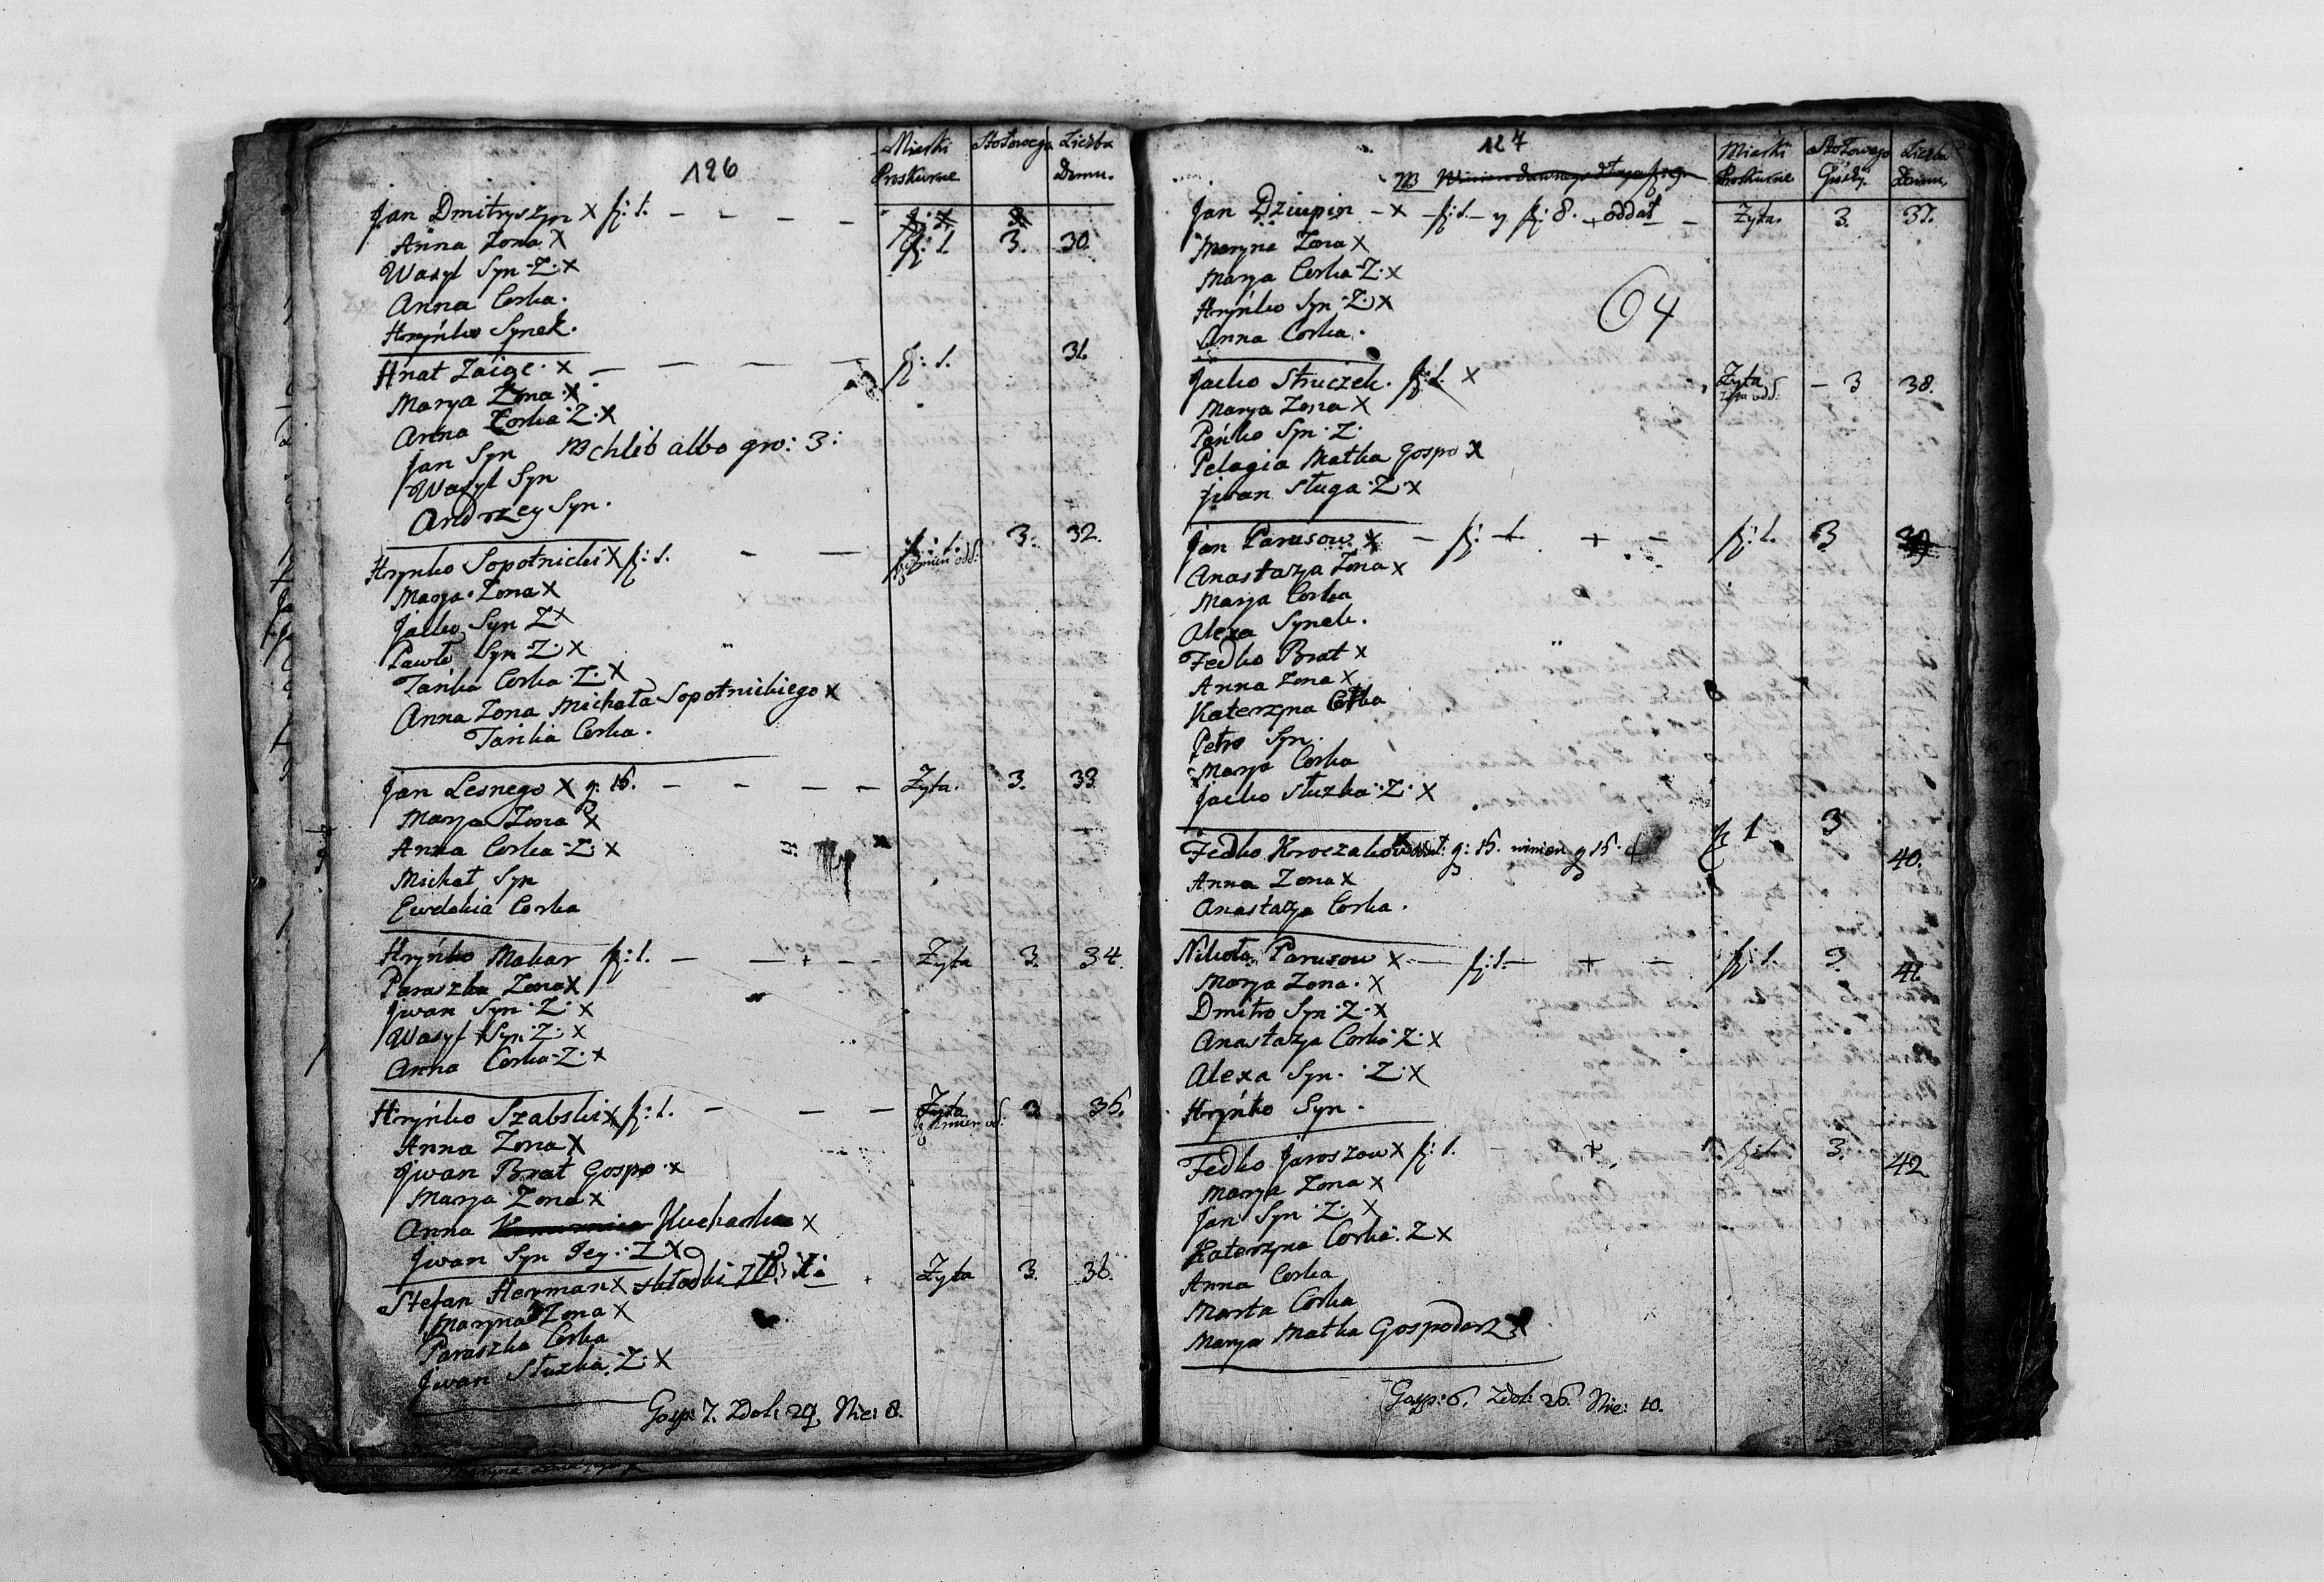 126
Mieski Stołowego Liczba
Proskurne Domu.
Jan Dmitryszyn X f: 1. - - - -
Anna Zona X f: 1. 3. 30.
Wasyl Syn Z: X
Anna Corka.
Hryńko Synek.
Hnat X - - - - f: 1. 31.
Marya Zona X
Anna Corka Z: X
Jan Syn NB chlib albo gro: 3:
Wasyl Syn
Andrzey Syn.
Hryńko Sopotnicki X f: 1. - - f: 1. 3. 32.
Marya Zona X
Jacko Syn Z X
Pawło Syn Z: X
Tańka Corka Z: X
Anna Zona Michała Sopotnickiego X
Tańka Corka.
Jan Lesnego X g: 15. - - - - Zyta. 3. 33
Marya Zona X
Anna Corka Z: X
Michał Syn
Ewdokia Corka
Hryńko Makar f: 1. - - + - - Zyta 3. 34.
Paraszka Zona X
Jwan Syn Z: X
Wasyl Syn Z: X
Anna Corka Z: X
Hryńko Szabski X f: 1. - - - Zyta 3 35.
Anna Zona X
Jwan Brat Gospo X
Marya Zona X
Anna Kucharka X
Jwan Syn Jey: Z X
Stefan Herman X składki Zyta 3. 36.
Maryna Zona X
Paraszka Corka
Jwan Słuzka Z: X
Gosp: 7. Zdol: 29, Nie: 8.
127
Mieski Stołowego Liczba
Proskurne Domu.
NB Winien dawnego długu
Jan Dziupin - X - f: 1. - y f: 8. + oddał - Zyta. 3. 37.
Maryna Zona X
Marya Corka Z: X
Hryńko Syn Z: X
64
Anna Corka.
Jacko Struczek. f: 1. X Zyta - 3 38.
Marya Zona X
Pańko Syn Z:
Pelagia Matka Gospo X
Jwan Sługa Z: X
Jan Parusow X - f: 1. + - f: 1. 3 39
Anastazya Zona X
Marya Corka
Alexa Synek.
Fedko Brat X
Anna Zona X
Katerzyna Corka
Petro Syn.
Marya Corka
Jacko Słuzka Z: X
Fedko g: 15. winien g 15. f 1 3 40.
Anna Zona X
Anastazya Corka.
Nikoła Parusow X - f: 1. - + - f: 1. 3. 41.
Marya Zona. X
Dmitro Syn Z: X
Anastazya Corka Z: X
Alexa Syn. Z: X
Hryńko Syn.
Fedko Jaroszow X f: 1. - + f: 1. 3. 42
Marya Zona X
Jan Syn Z: X
Katerzyna Corka: Z X
Anna Corka
Marta Corka
Marya Matka Gospodarz X
Gosp: 6. Zdol: 26. Nie: 10.